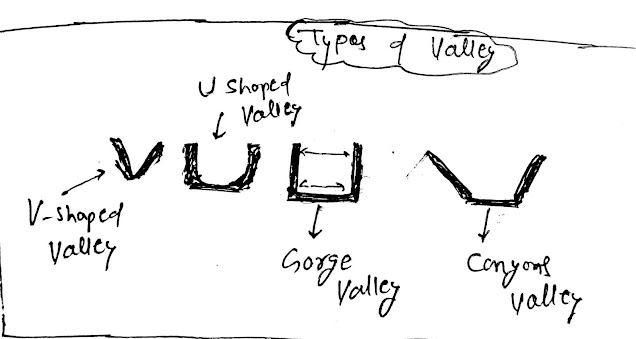 Types of Valley
U shaped
Valley
V-shaped
Valley
Gorge
Valley
Canyons
Valley